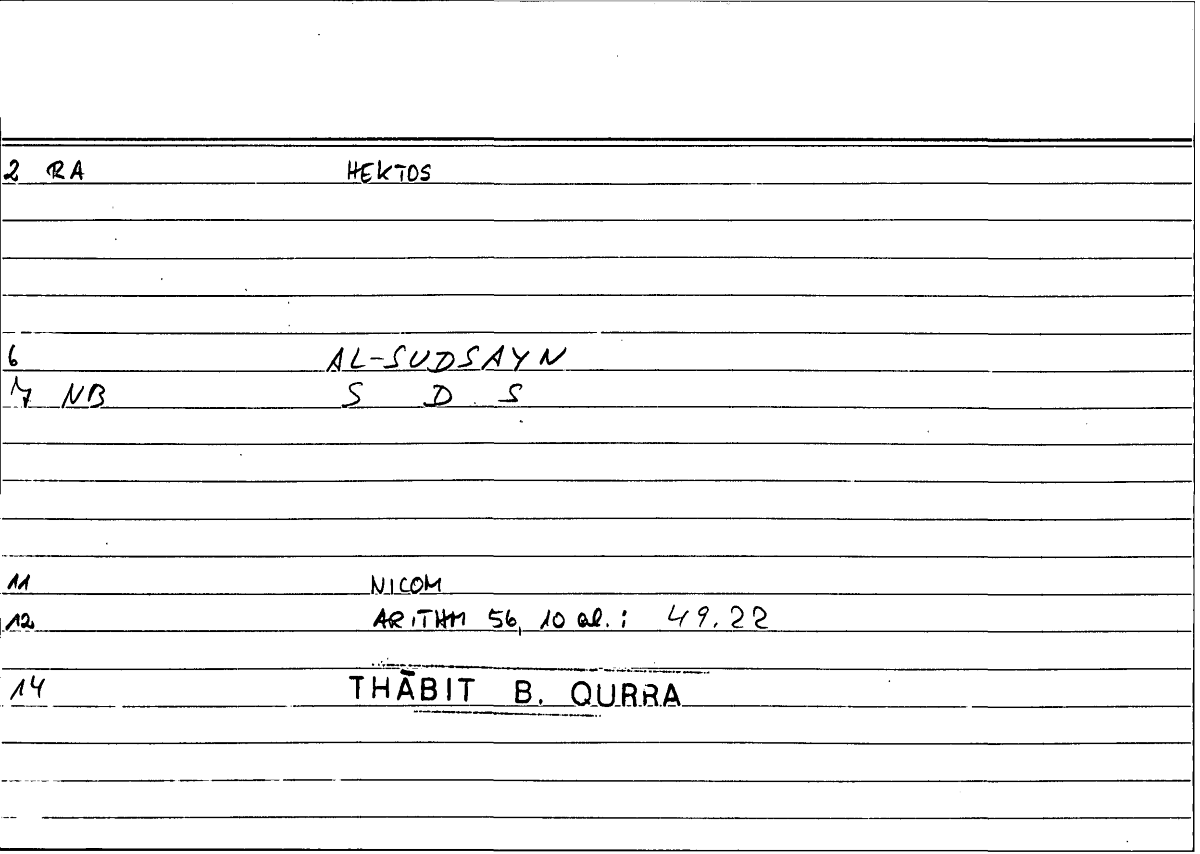 2 RA HEKTOS
6 AL-SUDSAYN
7 NB S D S
11 NICOM
12 ARITHM 56, 10 al. : 49.22
14 THĀBIT B. QURRA